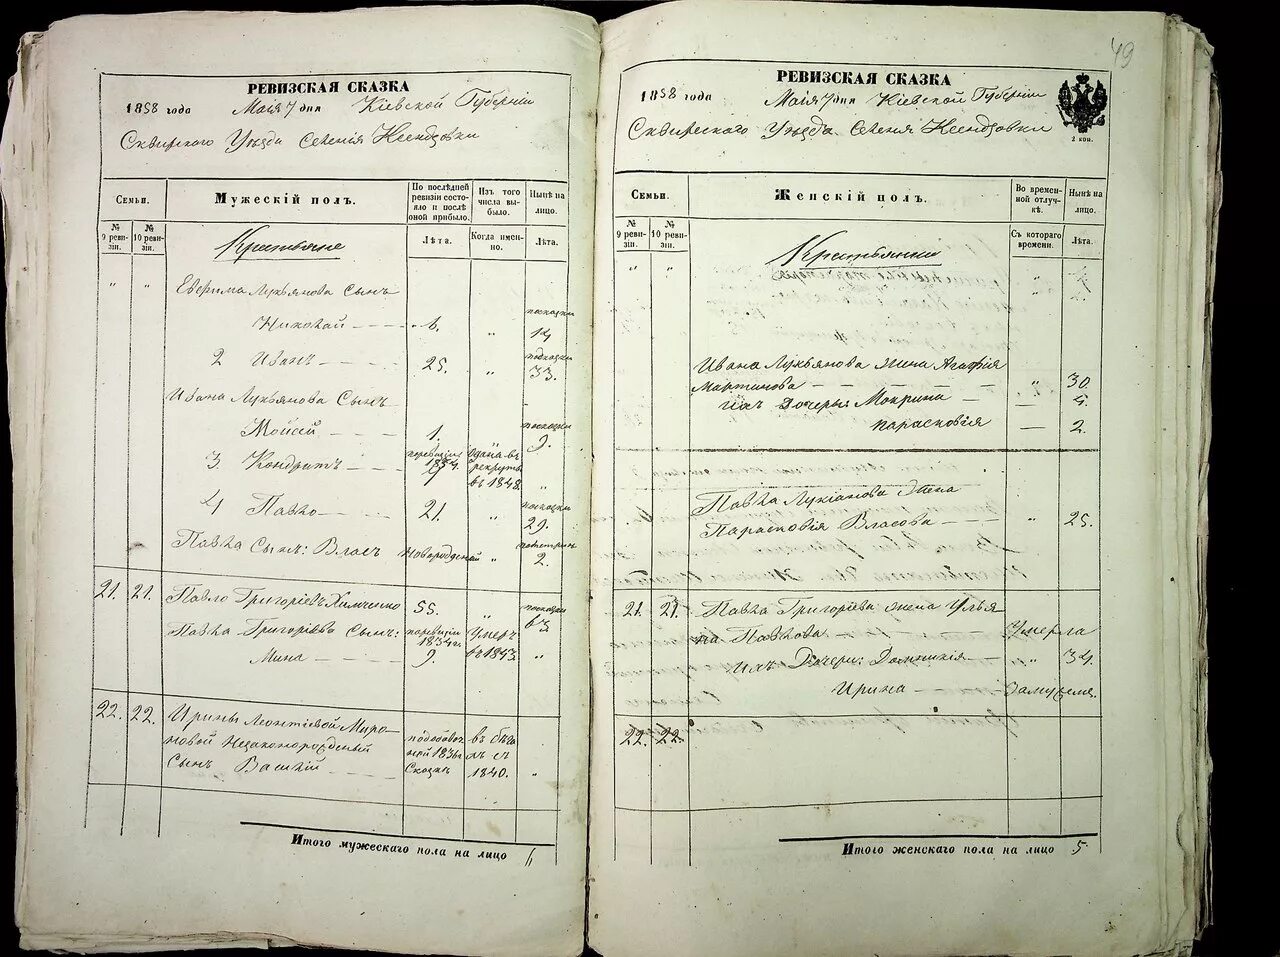 49
РЕВИЗСКАЯ СКАЗКА
1858 года Маія 7 дня Кіевской Губерніи
Сквирскаго Уѣзда Селенія Ксендзовки
Семьи.
Мужескій полъ.
По послѣдней ревизіи состояло и послѣ оной прибыло.
Изъ того числа выбыло.
Нынѣ на лицо.
№ 9 ревизіи.
№ 10 ревизіи.
Лѣта.
Когда именно.
Лѣта.
Крестьяне
" "
Ефрима Лукьянова Сынъ
Николай — — — 6. " 14
2 Иванъ — — — 25. " 33.
Ивана Лукьянова Сынъ
Мойсей — — — 1. 9.
3. Кондратъ — — 1834. въ 1848. "
4 Павло — — — 21. " 29.
Павла Сынъ: Власъ новорожденный " 2.
21. 21. Павло Григоріевъ Химченко 55. " 63
Павла Григоріева Сынъ: 1834 г. Умеръ
Мина — — — 9. въ 1843. "
22. 22. Ирины Леонтіевой Миро-
новой Незаконорожденый
Сынъ Василій — — — 1840. "
Итого мужескаго пола на лицо 6
РЕВИЗСКАЯ СКАЗКА
1858 года Маія 7 дня Кіевской Губерніи
Сквирскаго Уѣзда Селенія Ксендзовки
2 коп.
Семьи.
Женскій полъ.
Во временной отлучкѣ.
Нынѣ на лицо.
№ 9 ревизіи.
№ 10 ревизіи.
Съ котораго времени.
Лѣта.
Крестьянки
" "
Ивана Лукьянова жена Агафія
Мартинова — — — " 30.
ихъ Дочери Мокрина — — 4.
Парасковія — 2.
Павла Лукіанова жена
Парасковія Власова — — — " 25.
21. 21. Павла Григоріева жена Улья
на Павлова Умерла
Ихъ Дочери: Домникія — " 34.
Ирина — — Замужемъ.
22. 22.
Итого женскаго пола на лицо 5